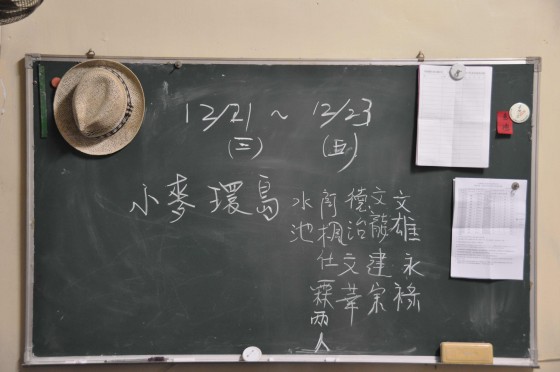 12/21 ~ 12/23
(三) (五)
小麥環島
文雄永祿
文龍建宗
德治文華
楓仕霖兩人
水池